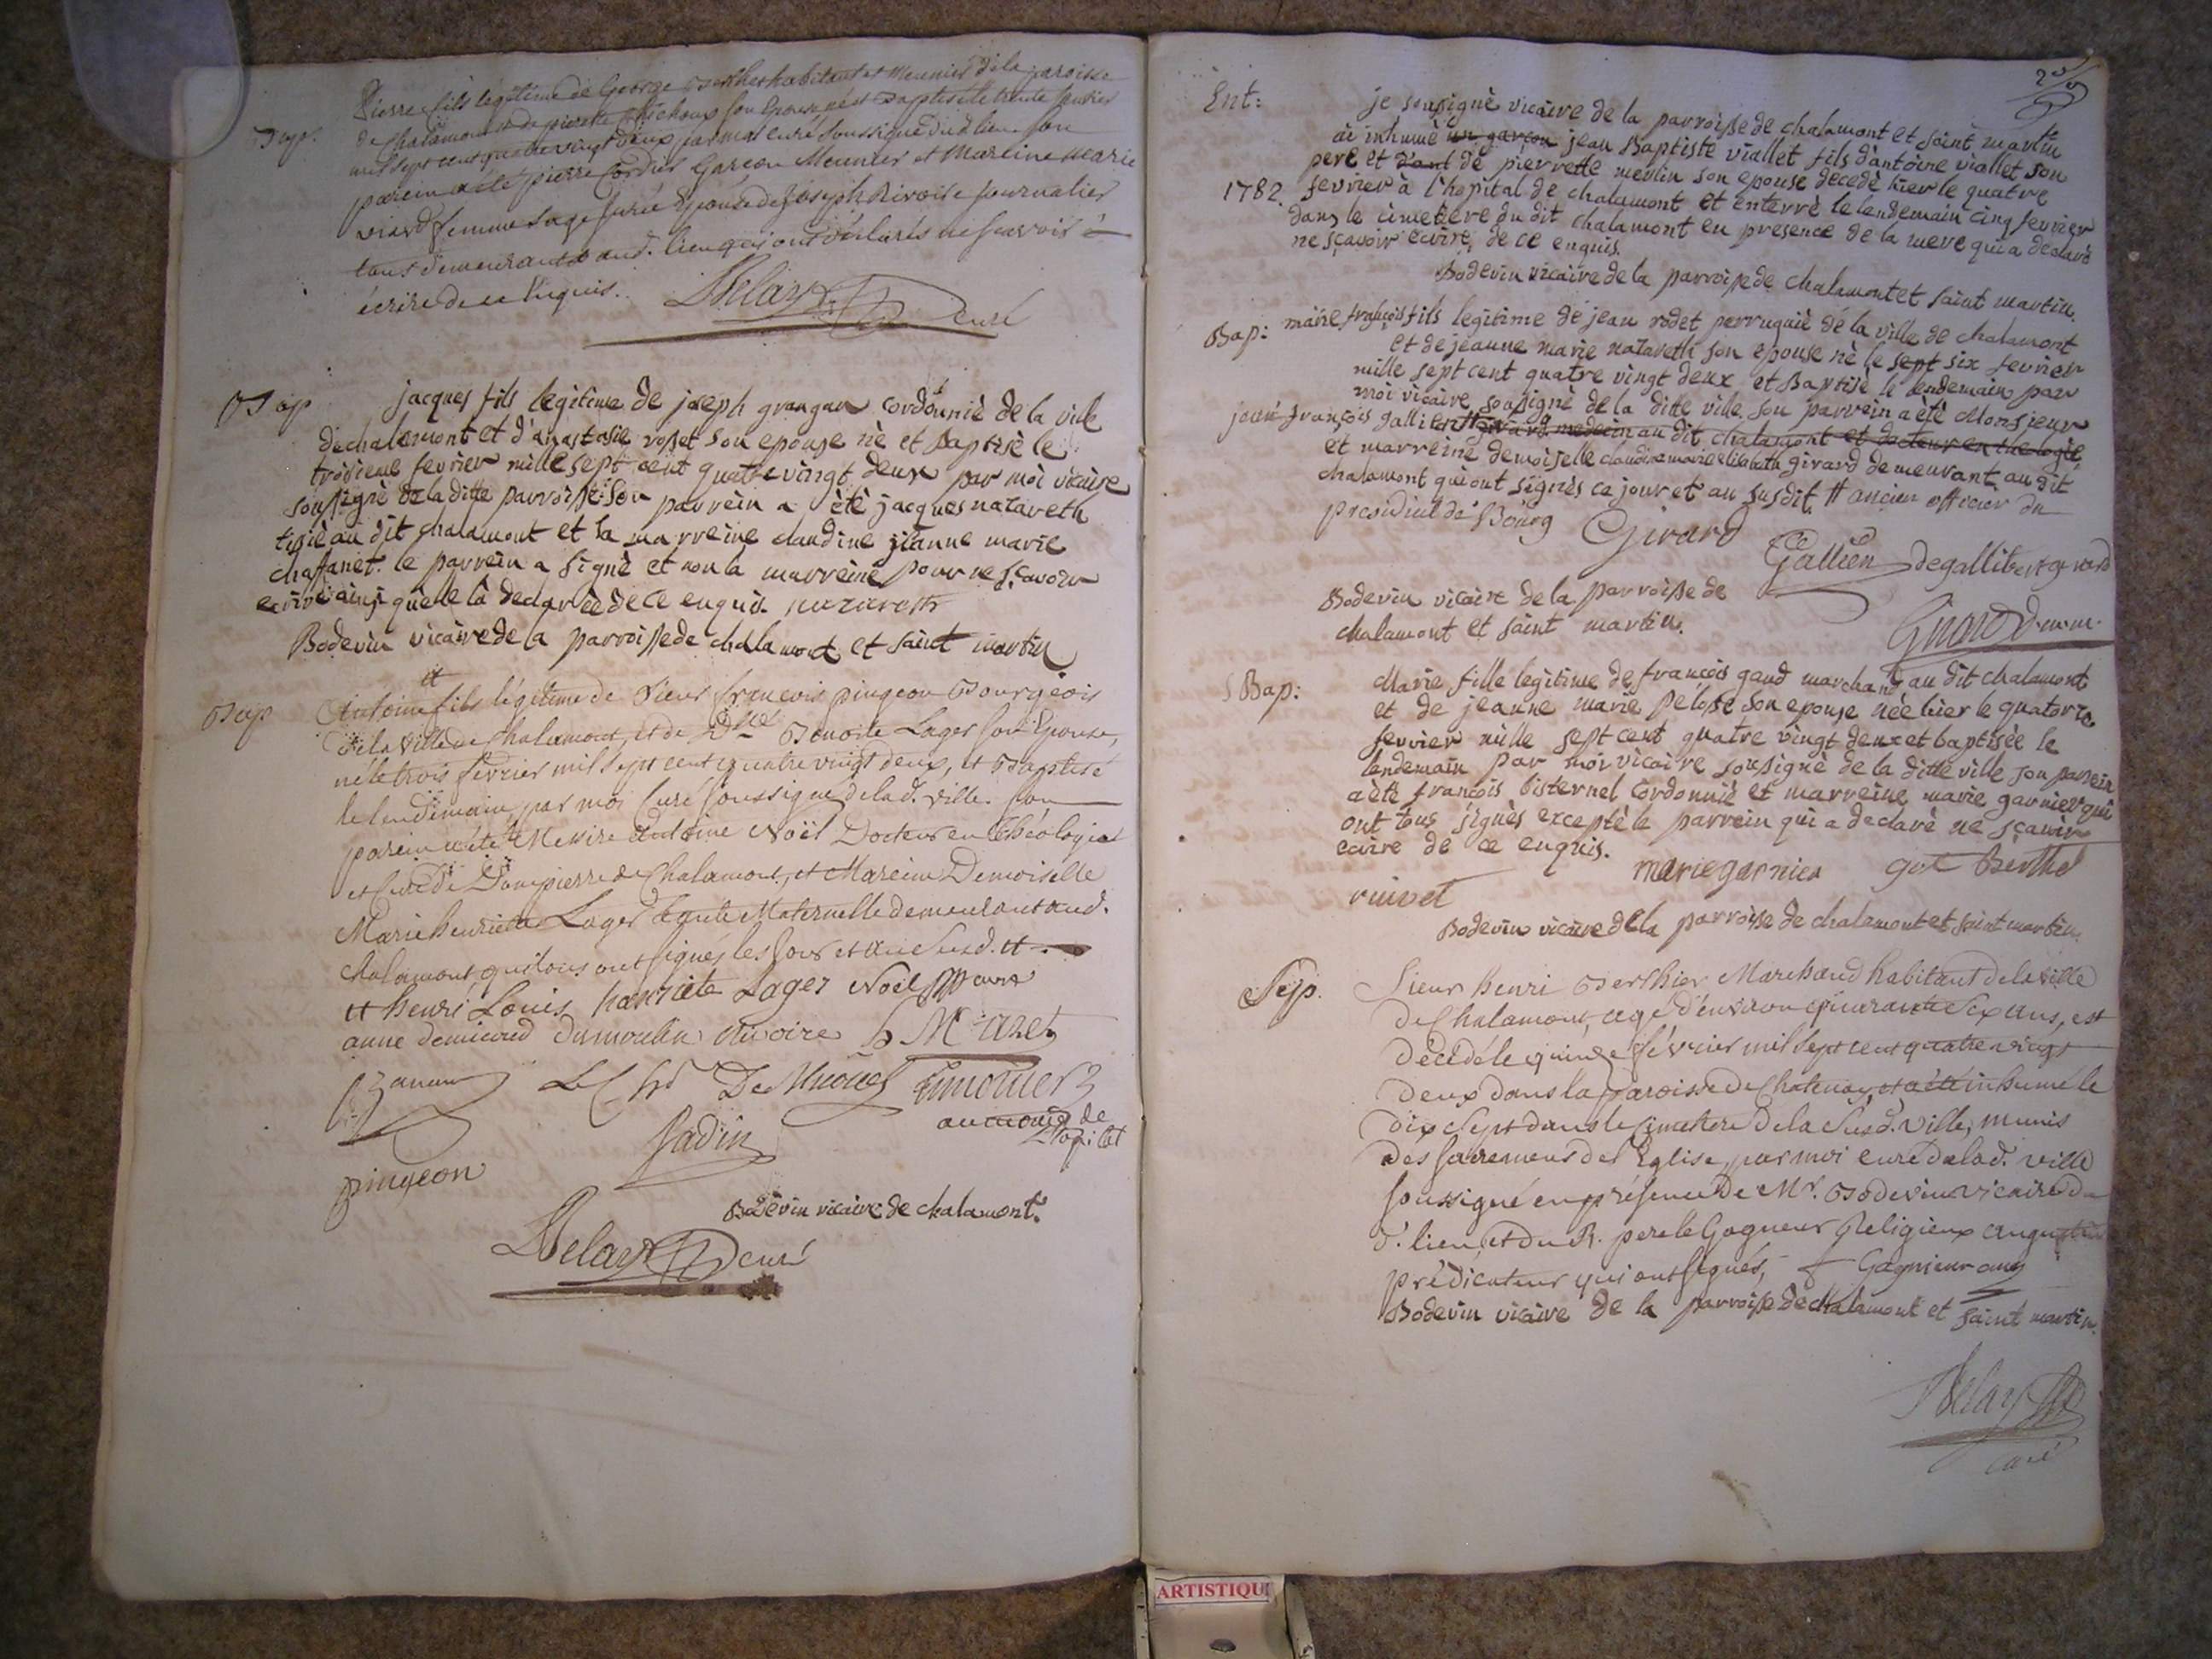 Bap.
Pierre fils légitime de George Berthet habitant et Meunier de la paroisse
de Chalamont et de pierrette Michoux son Epouse, né et Baptisé le trente Janvier
mil sept cent quatre vingt deux par moi curé soussigné dud. lieu son
parein a été pierre Cordier Garçon Meunier et Mareine marie
viard femme sage jurée Epouse de Joseph Rivoire Journalier
tous demeurants aud. lieu qui ont déclarés ne sçavoir
écrire de ce Enquis.
Delay curé
Bap
jacques fils legitime de joseph grangan cordonniè de la ville
de chalamont et d'anastasie rosset son epouse nè et baptisè le
troisieme fevrier mille sept cent quatre vingt deux par moi vicaire
soussignè de la ditte parroisse. Son parrein a ètè jacques nazareth
tisiè au dit chalamont et la marreine claudine jeanne marie
chaffanet. le parrein a signè et non la marreine pour ne sçavoir
ecrire ainsi quelle là declarèe de ce enquis. nazareth
Bodevin vicaire de la parroisse de chalamont et saint martin
Bap
Antoine # fils légitime de Sieur françois pingeon Bourgeois
de la ville de Chalamont, et de Dlle Benoite Lager son Epouse,
né le trois fevrier mil sept cent quatre vingt deux, et Baptisé
le lendemain par moi Curé soussigné de lad. ville. son
parein a été Messire Antoine Noël Docteur en théologie
et Curé de Dompierre de Chalamont, et Mareine Demoiselle
Marie henriette Lager tante Maternelle demeurant aud.
chalamont, qui tous ont signés les Jour et an Susd. #
# henri Louis henriete Lager Noël curé
anne demiared dumoulin
pingeon
Sadin
Bodevin vicaire de chalamont.
Delay curé
Ent:
1782.
je soussignè vicaire de la parroisse de chalamont et saint martin
ai inhumè un garçon jean Baptiste viallet fils d'antoine viallet son
pere et de pierrette merlin son epouse decedè hier le quatre
fevrier à l'hopital de chalamont et enterrè le lendemain cinq fevrier
dans le cimetiere du dit chalamont en presence de la mere qui a declarè
ne sçavoir ecrire, de ce enquis.
Bodevin vicaire de la parroisse de chalamont et saint martin.
Bap:
marie françois fils legitime de jean rodet perruquiè de la ville de chalamont
et de jeanne marie nazareth son epouse nè le sept six fevrier
mille sept cent quatre vingt deux et Baptisè le lendemain par
moi vicaire soussignè de la ditte ville son parrein a ètè Monsieur
jean françois gallien # girard medecin au dit chalamont et docteur en
et marreine demoiselle claudine marie elisabeth girard demeurant au dit
chalamont qui ont signès ce jour et an susdit, # ancien officier du
presidial de Bourg Girard
Gallien degallibert girard
Bodevin vicaire de la parroisse de
chalamont et saint martin.
Girard
Bap:
Marie fille legitime de françois gaud marchand au dit chalamont
et de jeanne marie pelosse son epouse nèe hier le quatorze
fevrier mille sept cent quatre vingt deux et baptisèe le
lendemain par moi vicaire soussignè de la ditte ville son parrein
a ètè françois bisternel cordonniè et marreine marie garnier qui
ont tous signès exceptè le parrein qui a declarè ne sçavoir
ecrire de ce enquis.
marie garnier got Berthel
ruivet
Bodevin vicaire de la parroisse de chalamont et saint martin.
Sep.
Sieur henri Berthier Marchand habitant de la ville
de Chalamont, agé d'environ quarante Six ans, est
décédé le quinze février mil Sept cent quatre vingt
deux dans la paroisse de Chatenay, et a été inhumé le
dix Sept dans le Cimetiere de la Susd. ville, munis
des Sacremens de l'Eglise, par moi curé de lad. ville
soussigné en présence de Mr. Bodevin vicaire du
d. lieu, et du R. pere le Gagneur Religieux augustin
prédicateur qui ont signés, f Gagnieur aug
Bodevin vicaire de la parroisse de chalamont et saint martin.
Delay
curé
ARTISTIQU